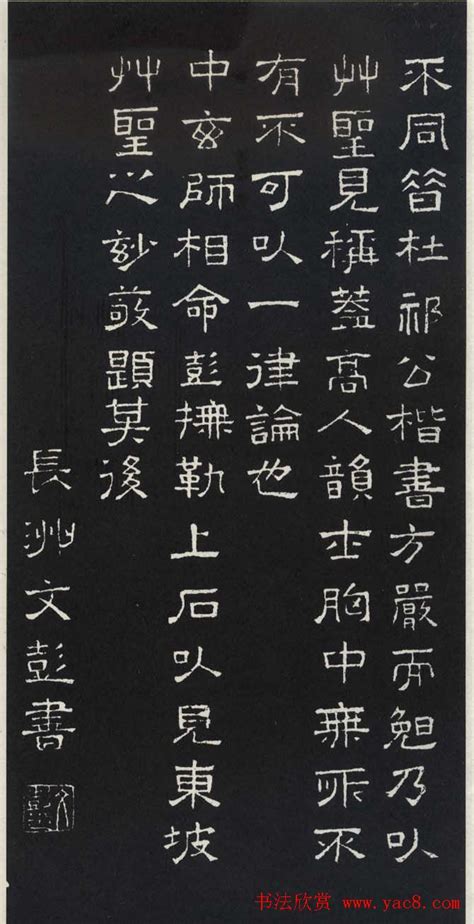 不同昔杜祁公楷書方嚴而晚乃以
艸聖見稱蓋高人韻士胸中無所不
有不可以一律論也
中玄師相命彭橅勒上石以見東坡
艸聖之玅敬題其後
長洲文彭書
文彭
书法欣赏 www.yac8.com